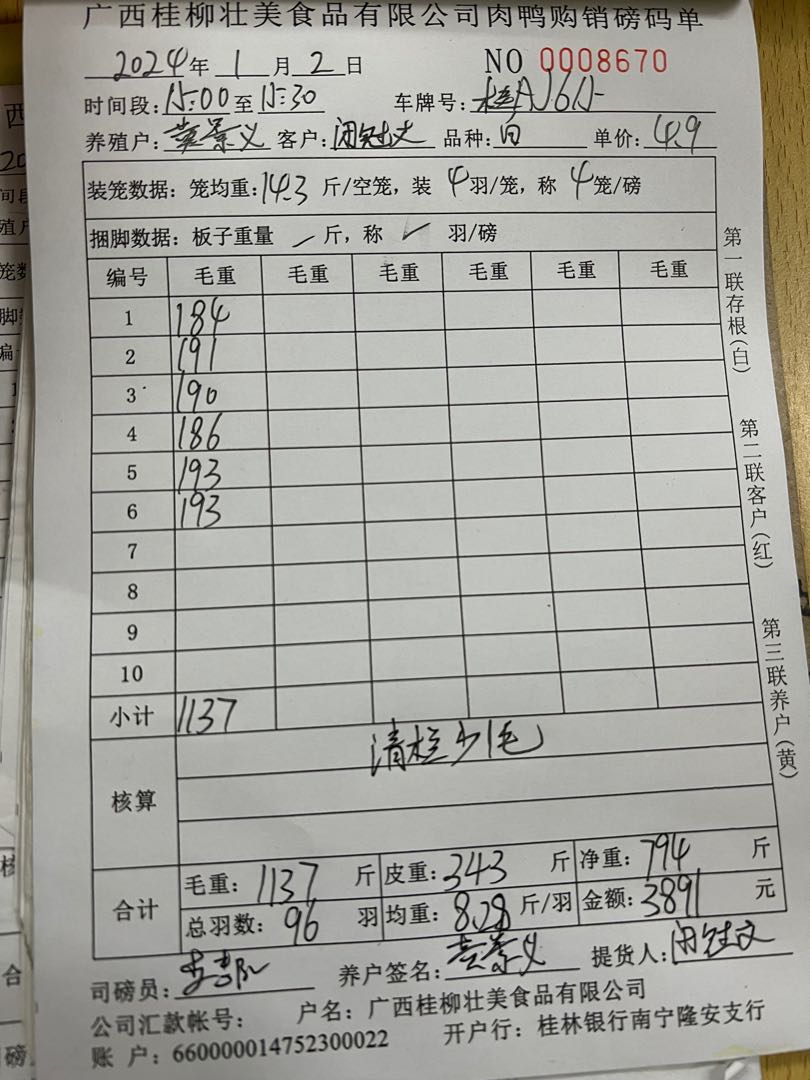 广西桂柳壮美食品有限公司肉鸭购销磅码单
2024年 1月 2日 NO 0008670
时间段: 15:00至15:30 车牌号: 桂AJ6
养殖户: 黄景义 客户: 闭冠文 品种: 白 单价: 4.9
装笼数据: 笼均重: 14.3 斤/空笼, 装 4 羽/笼, 称 4 笼/磅
捆脚数据: 板子重量 斤, 称 羽/磅
编号 毛重 毛重 毛重 毛重 毛重 毛重
1 184
2 191
3 190
4 186
5 193
6 193
7
8
9
10
小计 1137
核算 清栏少1毛
合计 毛重: 1137 斤 皮重: 343 斤 净重: 794 斤
总羽数: 96 羽 均重: 8.28 斤/羽 金额: 3891 元
司磅员: 养户签名: 黄景义 提货人: 闭冠文
公司汇款帐号: 户名: 广西桂柳壮美食品有限公司
账 户: 660000014752300022 开户行: 桂林银行南宁隆安支行
第一联存根(白)
第二联客户(红)
第三联养户(黄)